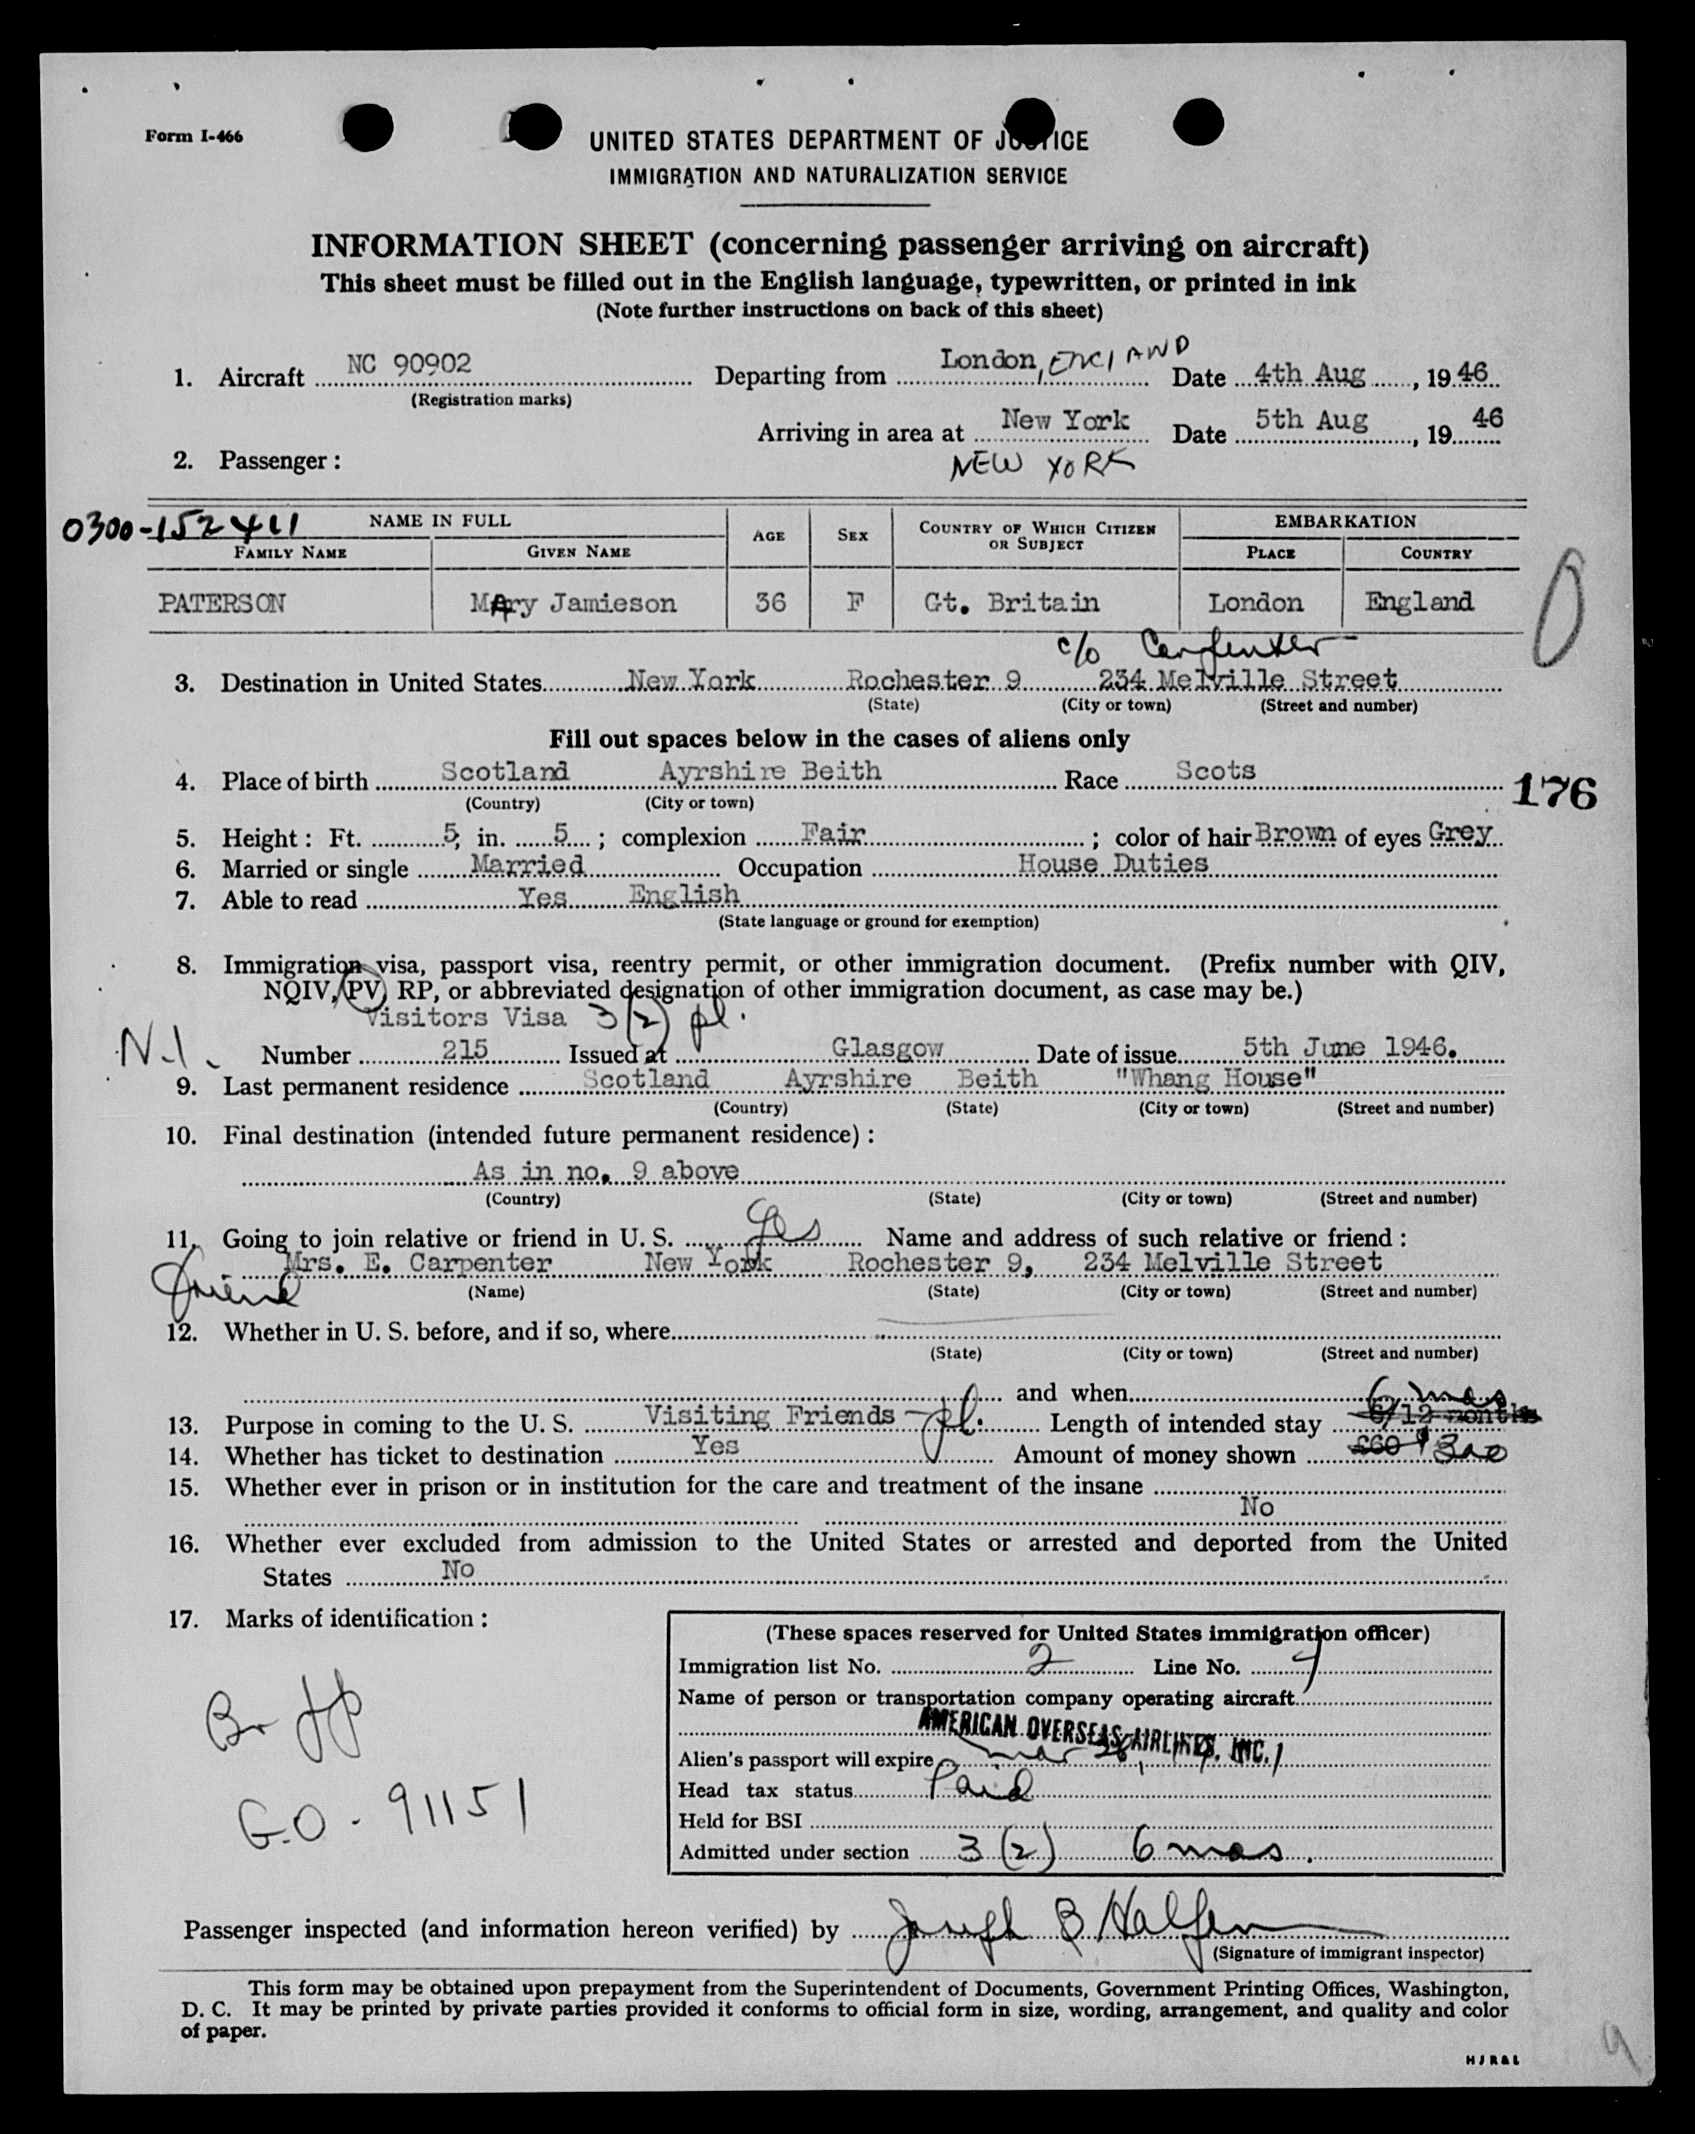 Form I-466
UNITED STATES DEPARTMENT OF JUSTICE
IMMIGRATION AND NATURALIZATION SERVICE
INFORMATION SHEET (concerning passenger arriving on aircraft)
This sheet must be filled out in the English language, typewritten, or printed in ink
(Note further instructions on back of this sheet)
1. Aircraft NC 90902 Departing from London, ENGLAND Date 4th Aug, 1946
(Registration marks)
Arriving in area at New York Date 5th Aug, 1946
2. Passenger: NEW YORK
0300-152411 NAME IN FULL AGE SEX COUNTRY OF WHICH CITIZEN OR SUBJECT EMBARKATION
FAMILY NAME GIVEN NAME PLACE COUNTRY
PATERSON Mary Jamieson 36 F Gt. Britain London England
c/o Carpenter
3. Destination in United States New York Rochester 9 234 Melville Street
(State) (City or town) (Street and number)
Fill out spaces below in the cases of aliens only
4. Place of birth Scotland Ayrshire Beith Race Scots
(Country) (City or town)
176
5. Height: Ft. 5; in. 5; complexion Fair; color of hair Brown of eyes Grey
6. Married or single Married Occupation House Duties
7. Able to read Yes English
(State language or ground for exemption)
8. Immigration visa, passport visa, reentry permit, or other immigration document. (Prefix number with QIV,
NQIV, PV, RP, or abbreviated designation of other immigration document, as case may be.)
Visitors Visa 3(2) pl.
N.I. Number 215 Issued at Glasgow Date of issue 5th June 1946.
9. Last permanent residence Scotland Ayrshire Beith "Whang House"
(Country) (State) (City or town) (Street and number)
10. Final destination (intended future permanent residence):
As in no. 9 above
(Country) (State) (City or town) (Street and number)
11. Going to join relative or friend in U. S. Yes Name and address of such relative or friend:
Mrs. E. Carpenter New York Rochester 9, 234 Melville Street
friend (Name) (State) (City or town) (Street and number)
12. Whether in U. S. before, and if so, where
(State) (City or town) (Street and number)
and when
6 mos
13. Purpose in coming to the U. S. Visiting Friends - pl. Length of intended stay 6/12 months
14. Whether has ticket to destination Yes Amount of money shown £60 $300
15. Whether ever in prison or in institution for the care and treatment of the insane
No
16. Whether ever excluded from admission to the United States or arrested and deported from the United
States No
17. Marks of identification:
(These spaces reserved for United States immigration officer)
Immigration list No. 2 Line No. 4
Name of person or transportation company operating aircraft
AMERICAN OVERSEAS AIRLINES, INC.
Alien's passport will expire Mar
Head tax status Paid
Held for BSI
Admitted under section 3(2) 6 mos.
Br
G.O - 91151
Passenger inspected (and information hereon verified) by Joseph B Halfen
(Signature of immigrant inspector)
This form may be obtained upon prepayment from the Superintendent of Documents, Government Printing Offices, Washington,
D. C. It may be printed by private parties provided it conforms to official form in size, wording, arrangement, and quality and color
of paper.
HJR&L
9